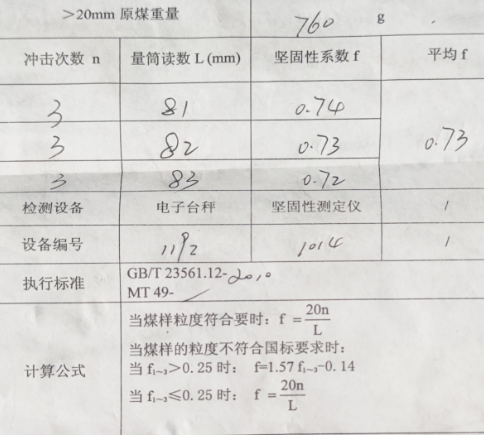 >20mm 原煤重量 760 g
冲击次数 n 量筒读数 L (mm) 坚固性系数 f 平均 f
3 81 0.74
3 82 0.73 0.73
3 83 0.72
检测设备 电子台秤 坚固性测定仪 /
设备编号 1192 1014 /
执行标准 GB/T 23561.12-2010
MT 49-
当煤样粒度符合要时：f =20n/L
当煤样的粒度不符合国标要求时：
计算公式 当 f₁~₃>0.25 时： f=1.57 f₁~₃-0.14
当 f₁~₃≤0.25 时： f =20n/L